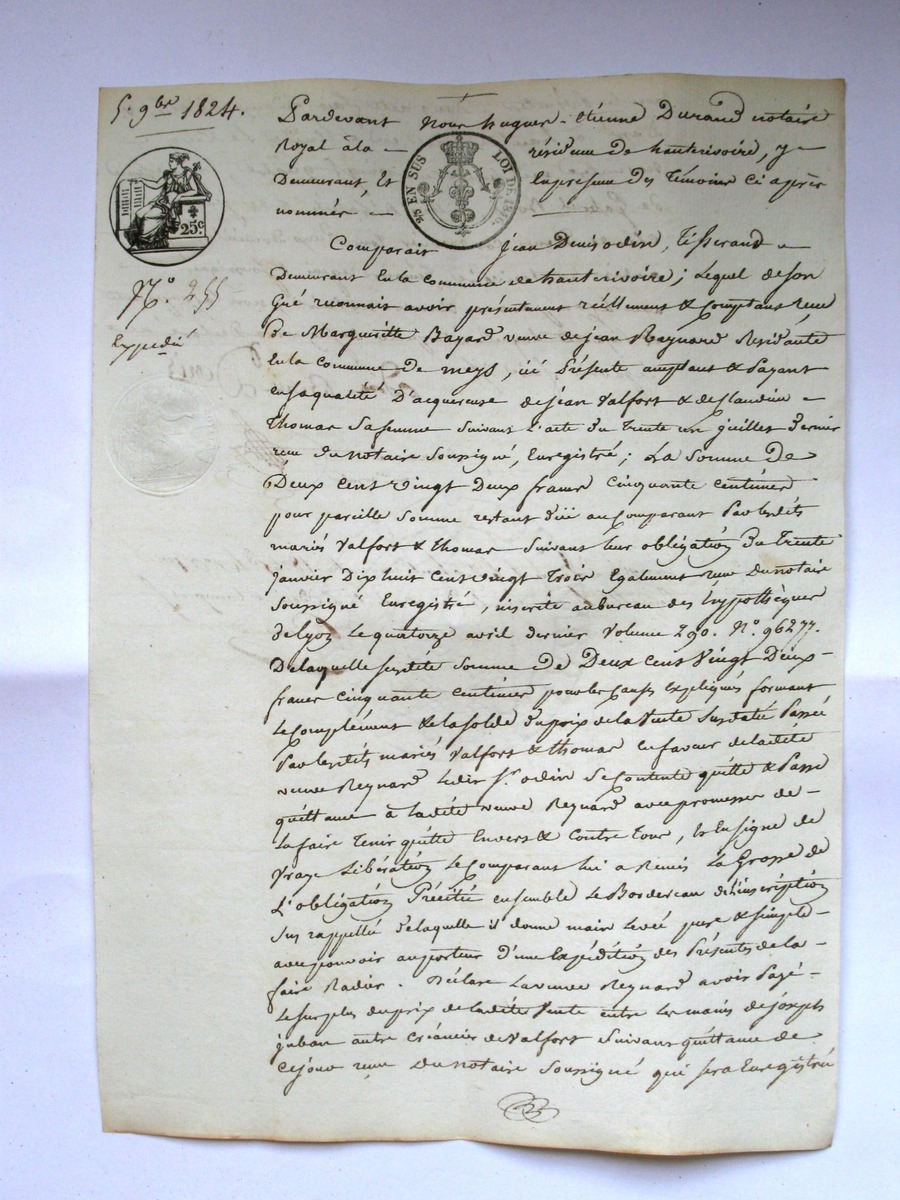 5. 9bre 1824.
Pardevant Nous hugues-étienne Durand notaire
Royal à la résidence de hauterivoire, y
Demeurant, Et En présence des Témoins ci après
nommés
25c.
25 EN SUS LOI DE 1816.
N.o 255
Expédié
Comparait jean Denis odin, Tisserand
Demeurant En la commune de hauterivoire ; Lequel de son
Gré reconnait avoir présentement réellement & Comptant reçu
De Margueritte Bayard veuve de jean Reynard Résidante
En la commune De meys, ici Présente acceptant & Payant
en sa qualité D'acquereuse de jean Valfort & de Claudine
Thomas Sa femme Suivant L'acte du Trente un juillet Dernier
reçu du notaire Soussigné, Enregistré ; La Somme De
Deux Cent Vingt Deux francs Cinquante Centimes
pour pareille Somme restant düe au Comparant Par lesdits
mariés Valfort & Thomas Suivant leur obligation du Trente
janvier Dix huit Cent vingt Trois Egalement reçue Du notaire
Soussigné Enregistré, inscrite au bureau des hypothèques
de lyon Le quatorze avril dernier Volume 290. N.o 96277.
De laquelle susdite Somme de Deux Cent Vingt Deux
francs Cinquante Centimes pour les Causes Expliquées formant
Le Complément & la solde du prix de la Vente Susdatée Passée
Par lesdits mariés Valfort & Thomas en faveur de ladite
veuve Reynard Ledit Sr. odin Se Contente quitte & Passe
quittance à Ladite veuve Reynard avec promesse de
La faire Tenir quitte Envers & Contre Tous, Et En Signe de
Vraye Libération Le Comparant lui a Remis La Grosse de
L'obligation Précitée ensemble Le Bordereau de L'inscription
Sus rappellée de laquelle il donne main Levée pure & Simple
avec pouvoir au porteur d'une Expédition des Présentes de la
faire Radier. Déclare La veuve Reynard avoir Payé
Le surplus du prix de Ladite Vente entre Les mains de joseph
juban autre Créancier de Valfort Suivant quittance de
Ce jour reçue Du notaire Soussigné qui sera Enregistrée